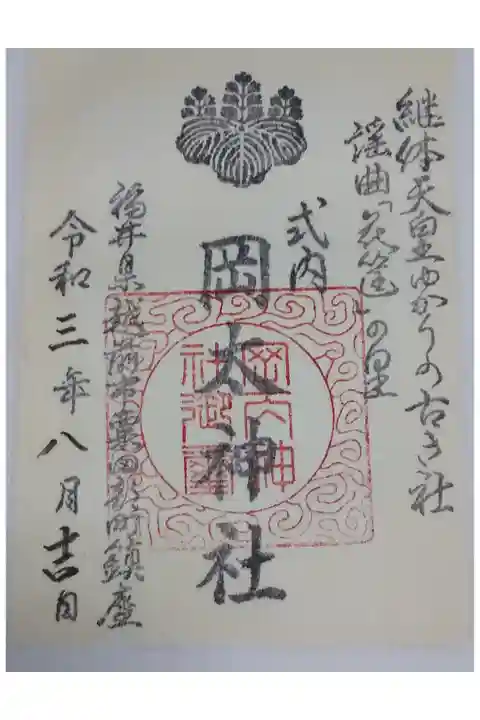 継体天皇ゆかりの古き社
謡曲「花筐」の里
式内
岡太神社
福井県越前市粟田部町鎮座
令和三年八月吉日